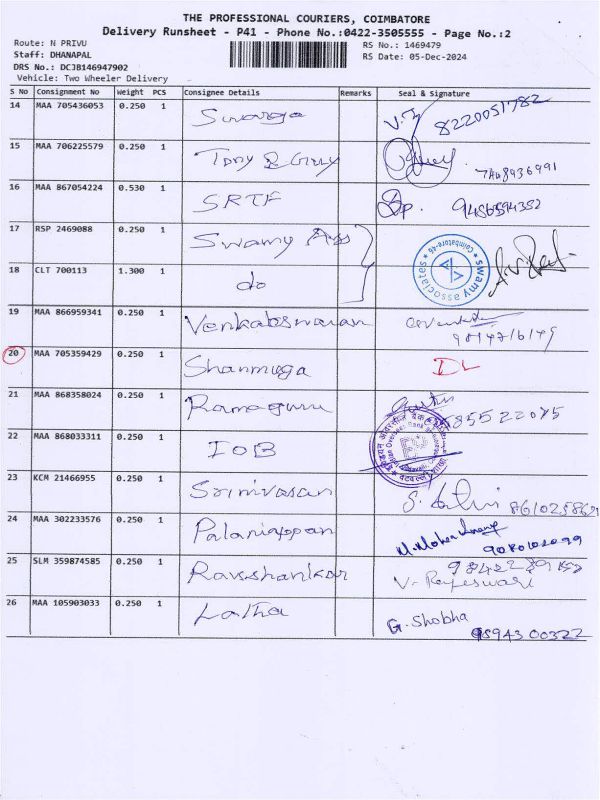 THE PROFESSIONAL COURIERS, COIMBATORE
Delivery Runsheet - P41 - Phone No.:0422-3505555 - Page No.:2
Route: N PRIVU RS No.: 1469479
Staff: DHANAPAL RS Date: 05-Dec-2024
DRS No.: DCJ8146947902
Vehicle: Two Wheeler Delivery
S No Consignment No Weight PCS Consignee Details Remarks Seal & Signature
14 MAA 705436053 0.250 1 Swarga 8220051782
15 MAA 706225579 0.250 1
16 MAA 867054224 0.530 1 SRTF
17 RSP 2469088 0.250 1 Swamy Ass
swamy associates Coimbatore-46
18 CLT 700113 1.300 1 do
19 MAA 866959341 0.250 1
20 MAA 705359429 0.250 1 Shanmuga DL
21 MAA 868358024 0.250 1 Ramaguru
22 MAA 868033311 0.250 1 IOB
23 KCM 21466955 0.250 1 Srinivasan
24 MAA 302233576 0.250 1 Palaniappan
25 SLM 359874585 0.250 1 Ravishankar
V. Rajeswari
26 MAA 105903033 0.250 1 Latha G. Shobha
95943 00322